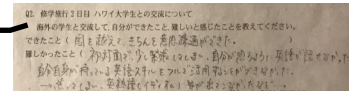 Q2. 修学旅行3日目 ハワイ大学生との交流について
海外の学生と交流して、自分ができたこと、難しいと感じたことを教えてください。
できたこと( 国を越えて、きちんと意思疎通ができた。 )
難しかったこと( 初対面で、少し緊張してしまい、自分が思うように英語が話せなかった
自分自身が持っている英語スキルをフルに活用することができなかった。